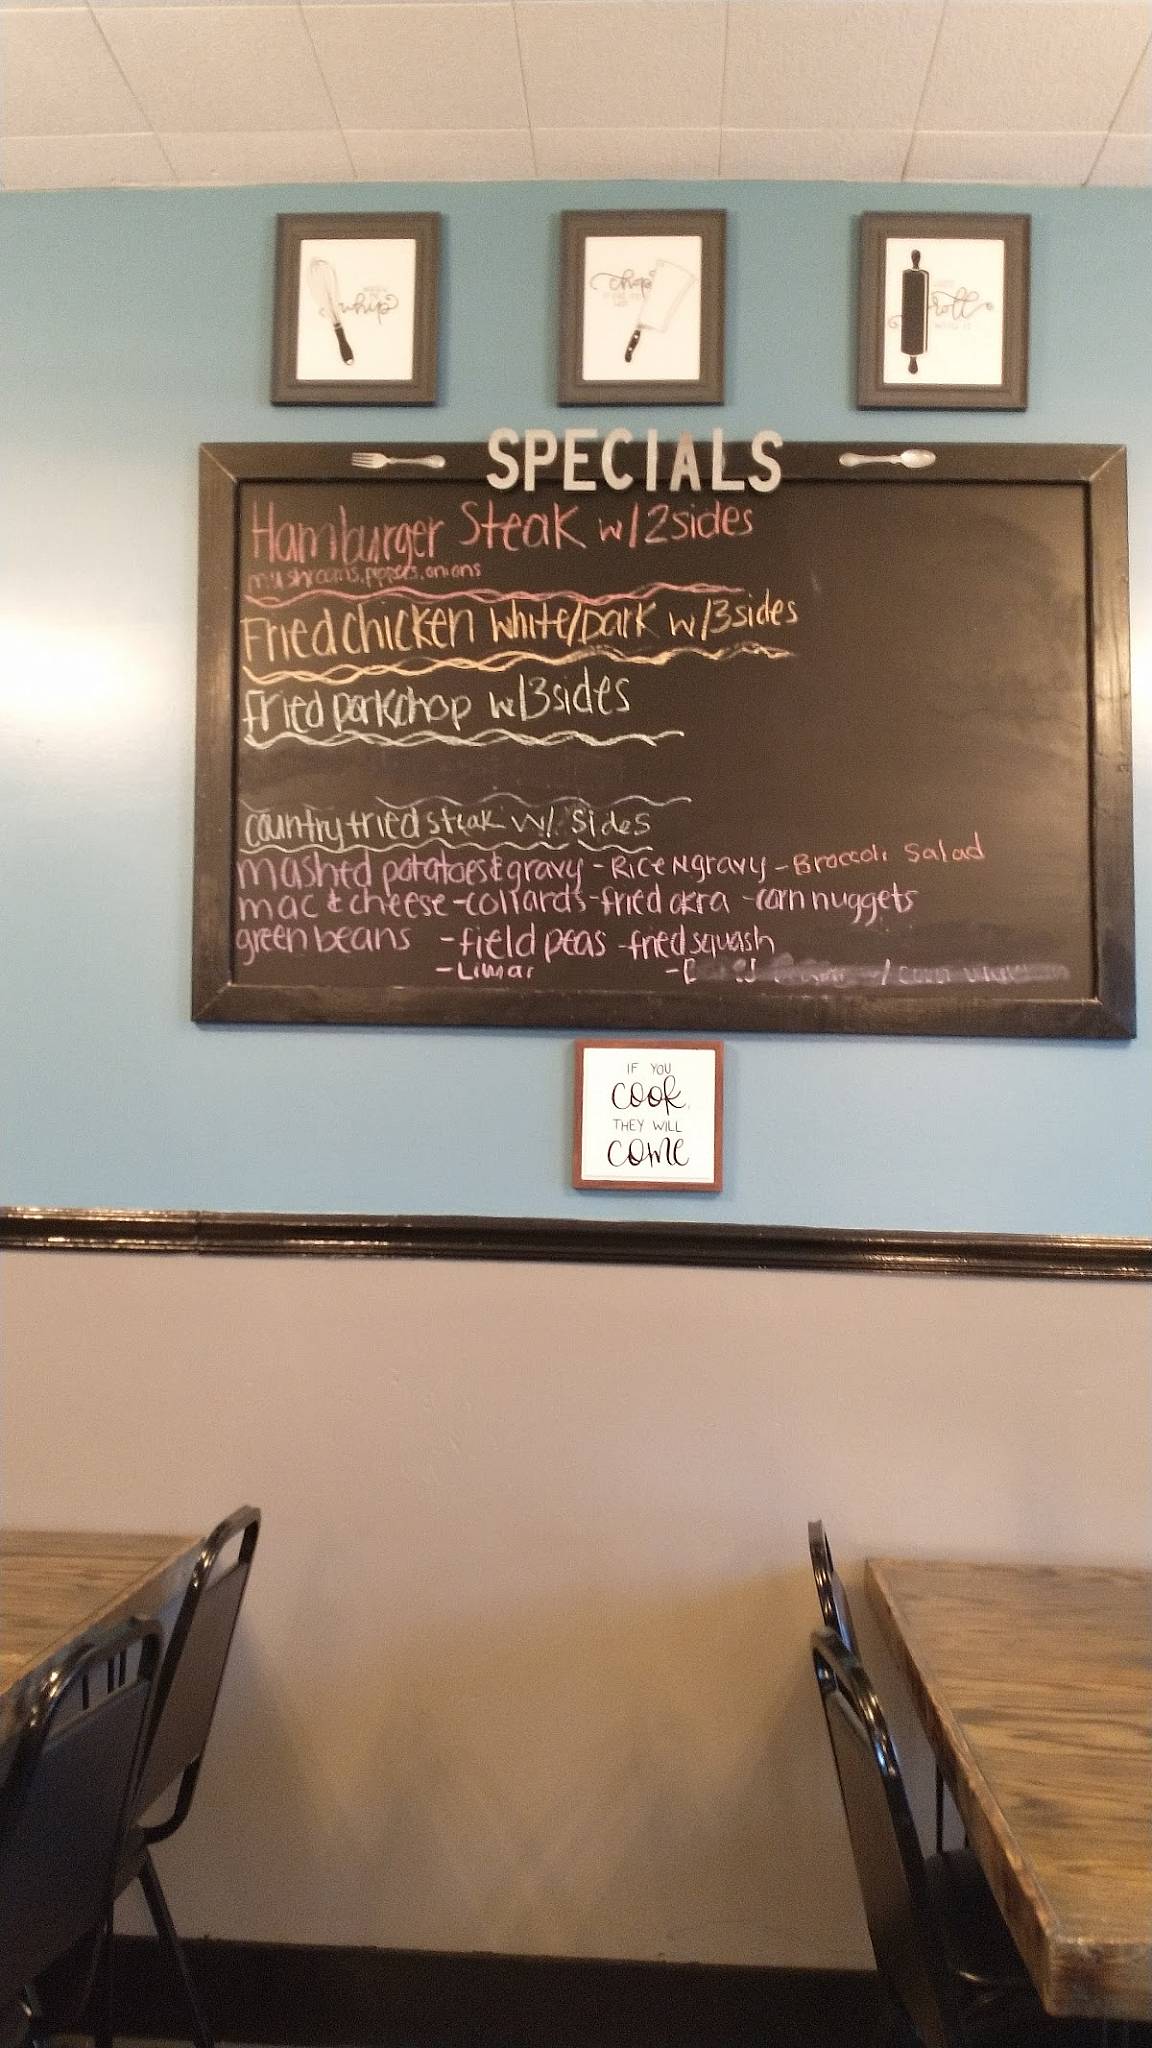 whip
chop
roll
SPECIALS
Hamburger Steak w/2sides
mushrooms, peppers, onions
Fried chicken white/Dark w/3sides
Fried porkchop w/3sides
country fried steak w/ sides
mashed potatoes & gravy - Rice N gravy - Broccoli Salad
mac & cheese - collards - fried okra - corn nuggets
green beans - field peas - fried squash
- Limar
IF YOU
cook,
THEY WILL
come